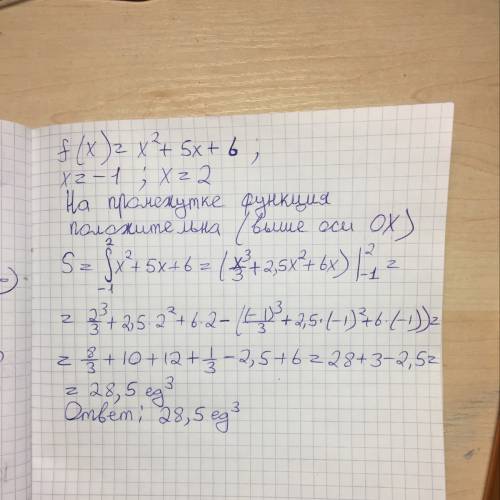 f(x) = x² + 5x + 6 ;
x = -1 ; x = 2
На промежутке функция
положительна (выше оси OX)
S = ∫₋₁² x² + 5x + 6 = (x³/3 + 2,5x² + 6x) |₋₁² =
= 2³/3 + 2,5·2² + 6·2 - ((-1)³/3 + 2,5·(-1)² + 6·(-1)) =
= 8/3 + 10 + 12 + 1/3 - 2,5 + 6 = 28 + 3 - 2,5 =
= 28,5 ед³
Ответ: 28,5 ед³